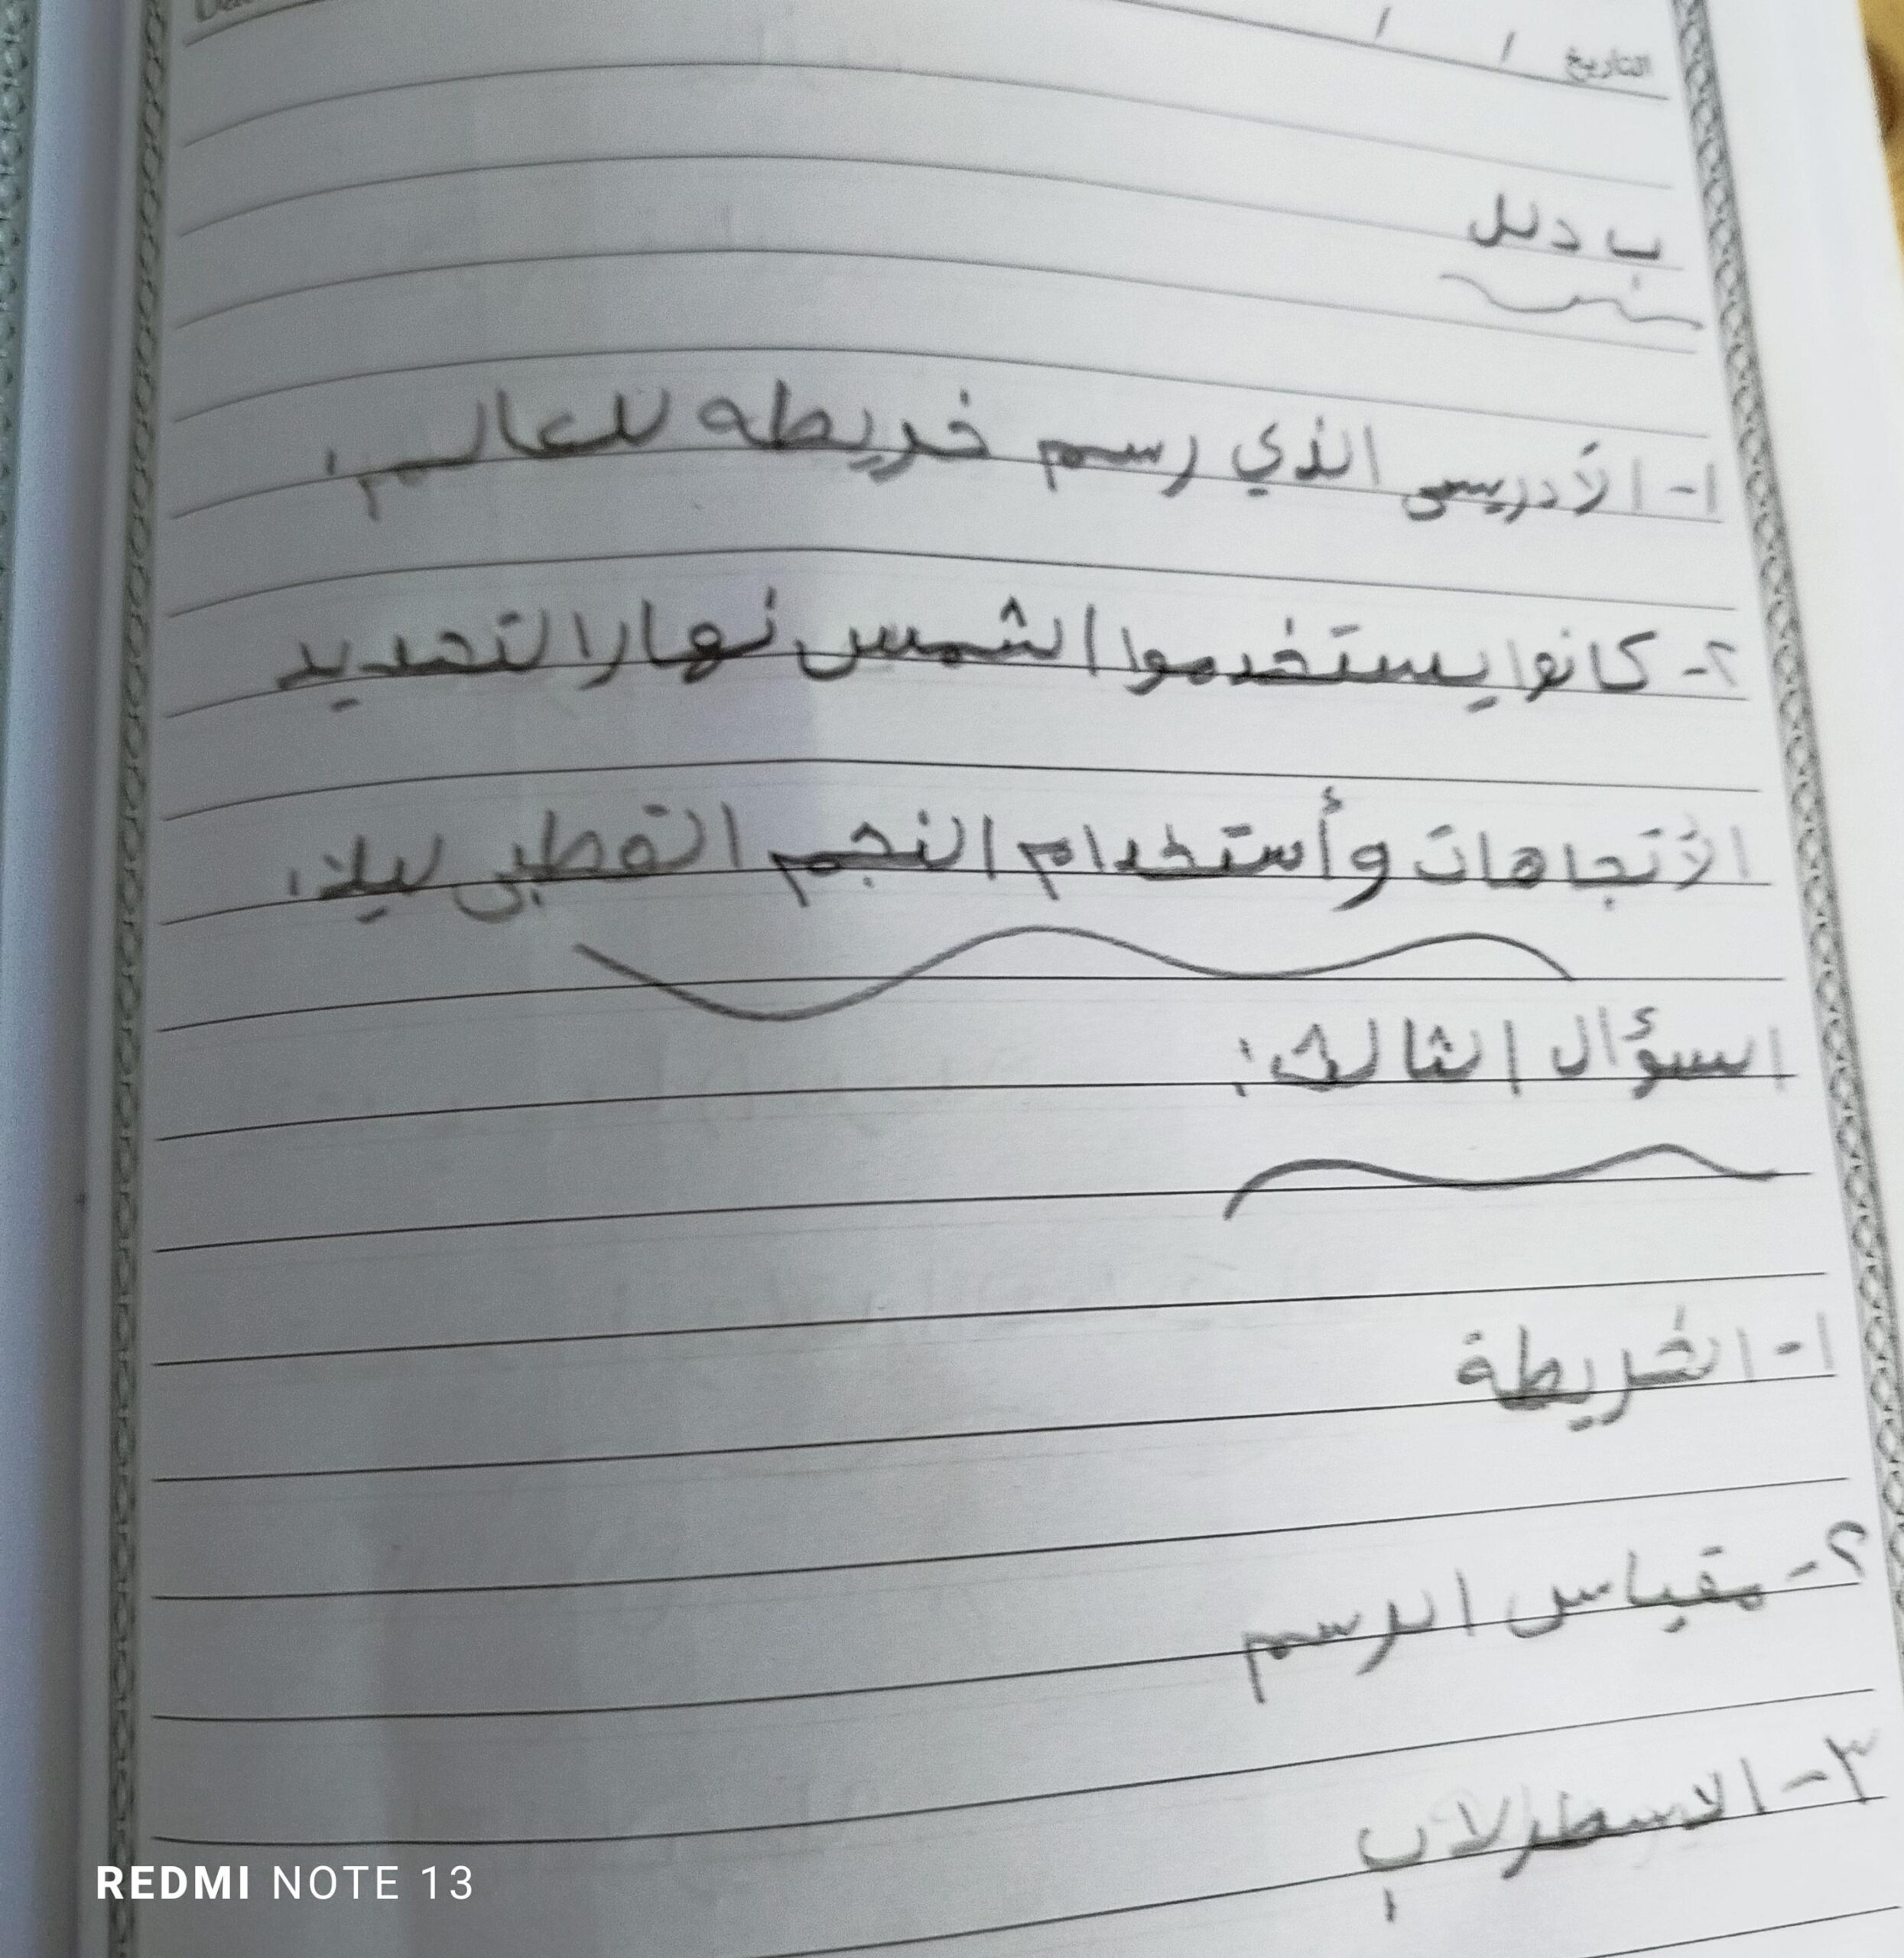 التاريخ / /
ب دلل
١- الأدريسى الذي رسم خريطه للعالم.
٢- كانوا يستخدموا الشمس نهارا لتحديد
الأتجاهات وأستخدام النجم القطبى ليلا.
السؤال الثالث:
١- الخريطة
٢- مقياس الرسم
٣- الاسطرلاب
REDMI NOTE 13